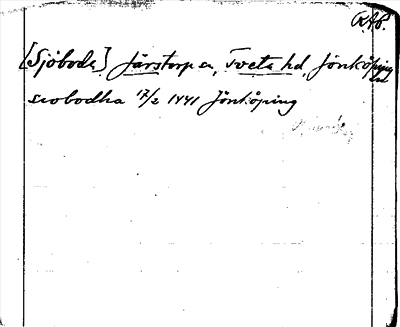 RAP.
[Sjöboda] Järstorp sn, Tveta hd, Jönköpings län
siobodha 17/2 1441 Jönköping